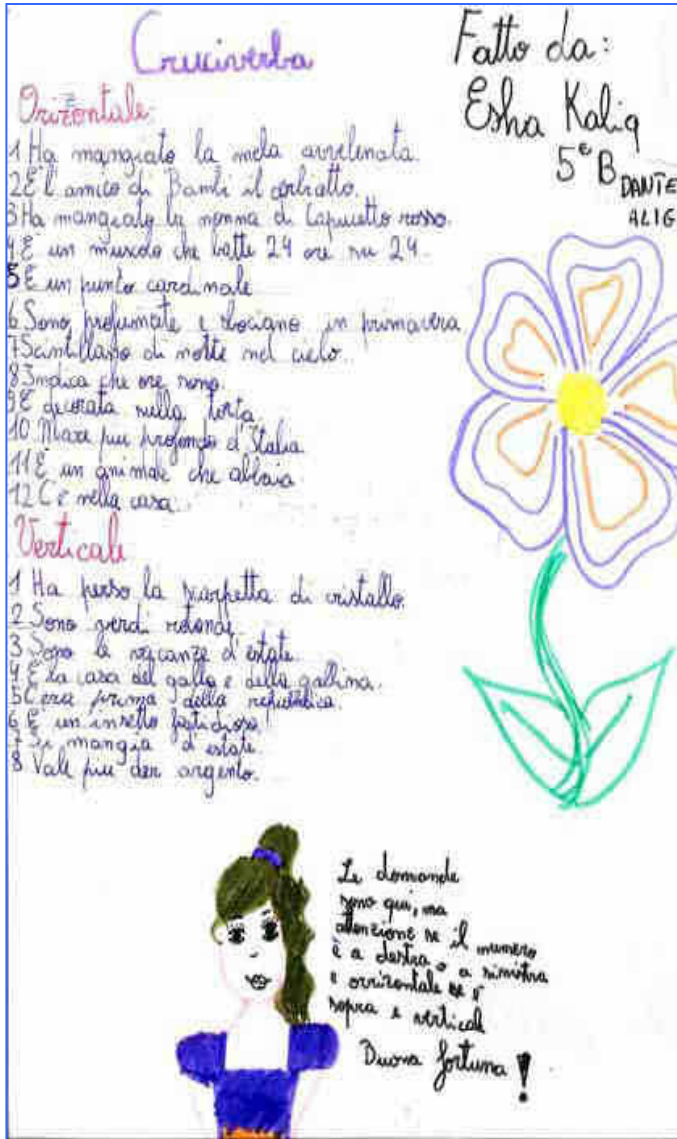 Cruciverba
Fatto da:
Esha Kaliq
5e B
DANTE
ALIG
Orizontale
1 Ha mangiato la mela avvelenata.
2 È l'amico di Bambi il cerbiatto.
3 Ha mangiato la nonna di Capuccetto rosso.
4 È un muscolo che batte 24 ore su 24.
5 È un punto cardinale
6 Sono profumate e sbociano in primavera
7 Scintillano di notte nel cielo.
8 Indica che ore sono.
9 È decorata nella torta.
10 Mare piu profondo d'Italia
11 È un animale che abbaia
12 C'è nella casa.
Verticale
1 Ha perso la scarpetta di cristallo.
2 Sono verdi rotondi.
3 Sono le vacanze d'estate.
4 È la casa del gallo e della gallina.
5 C'era prima della repubblica.
6 È un insetto fastidioso.
7 Si mangia d'estate.
8 Vale piu der argento.
Le domande
sono qui, ma
attenzione se il numero
è a destra o a sinistra
è orrizontale se è
sopra è verticale
Buona fortuna!